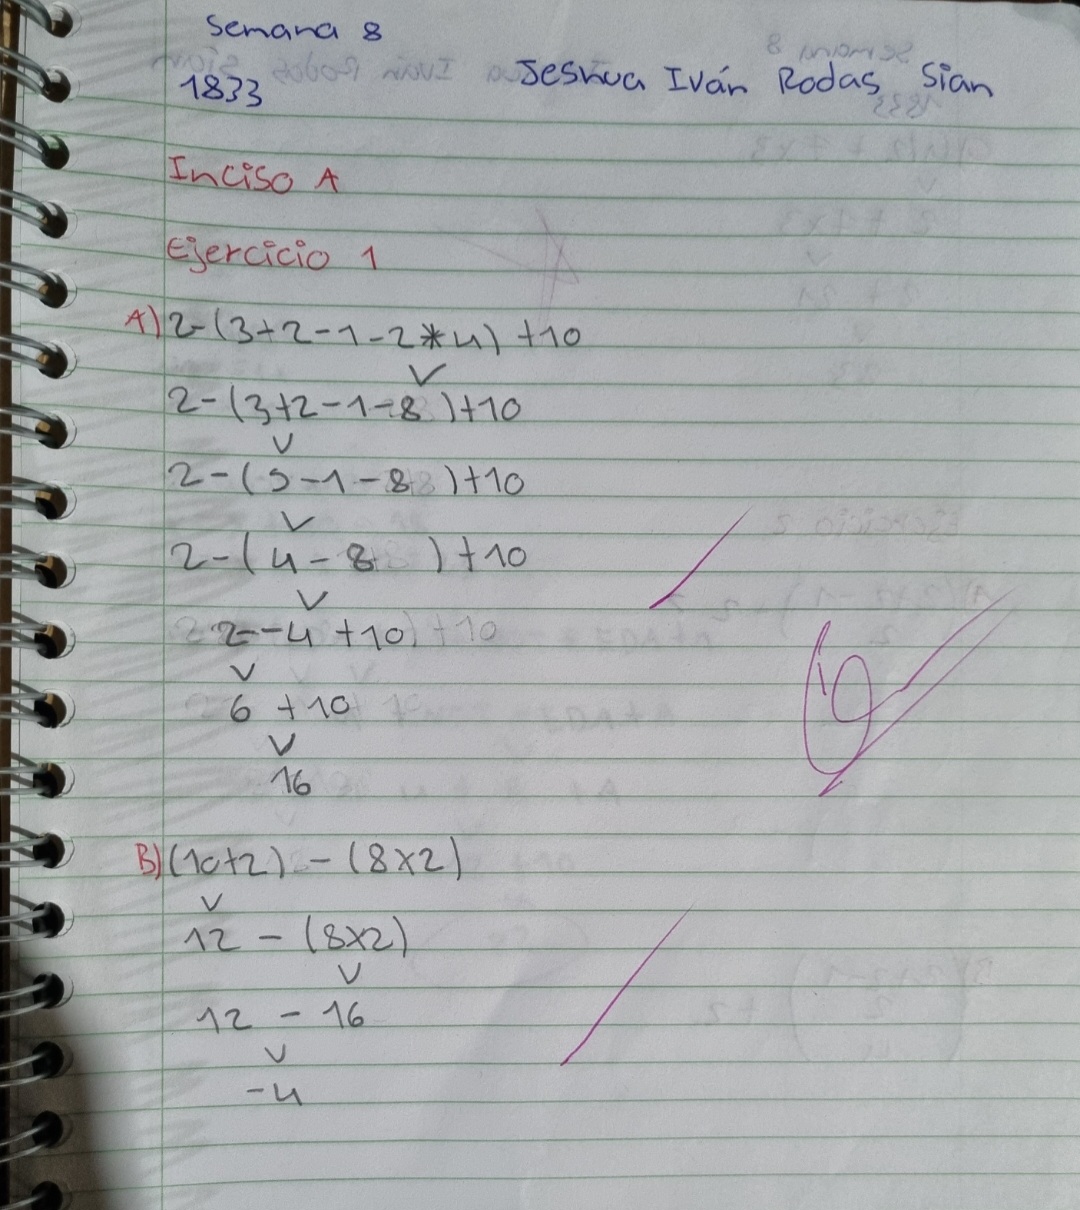 Semana 8
1833 Jeshua Iván Rodas Sian
Inciso A
Ejercicio 1
A) 2-(3+2-1-2*4)+10
2-(3+2-1-8)+10
2-(5-1-8)+10
2-(4-8)+10
2--4+10
6+10
16
B) (10+2)-(8x2)
12-(8x2)
12-16
-4